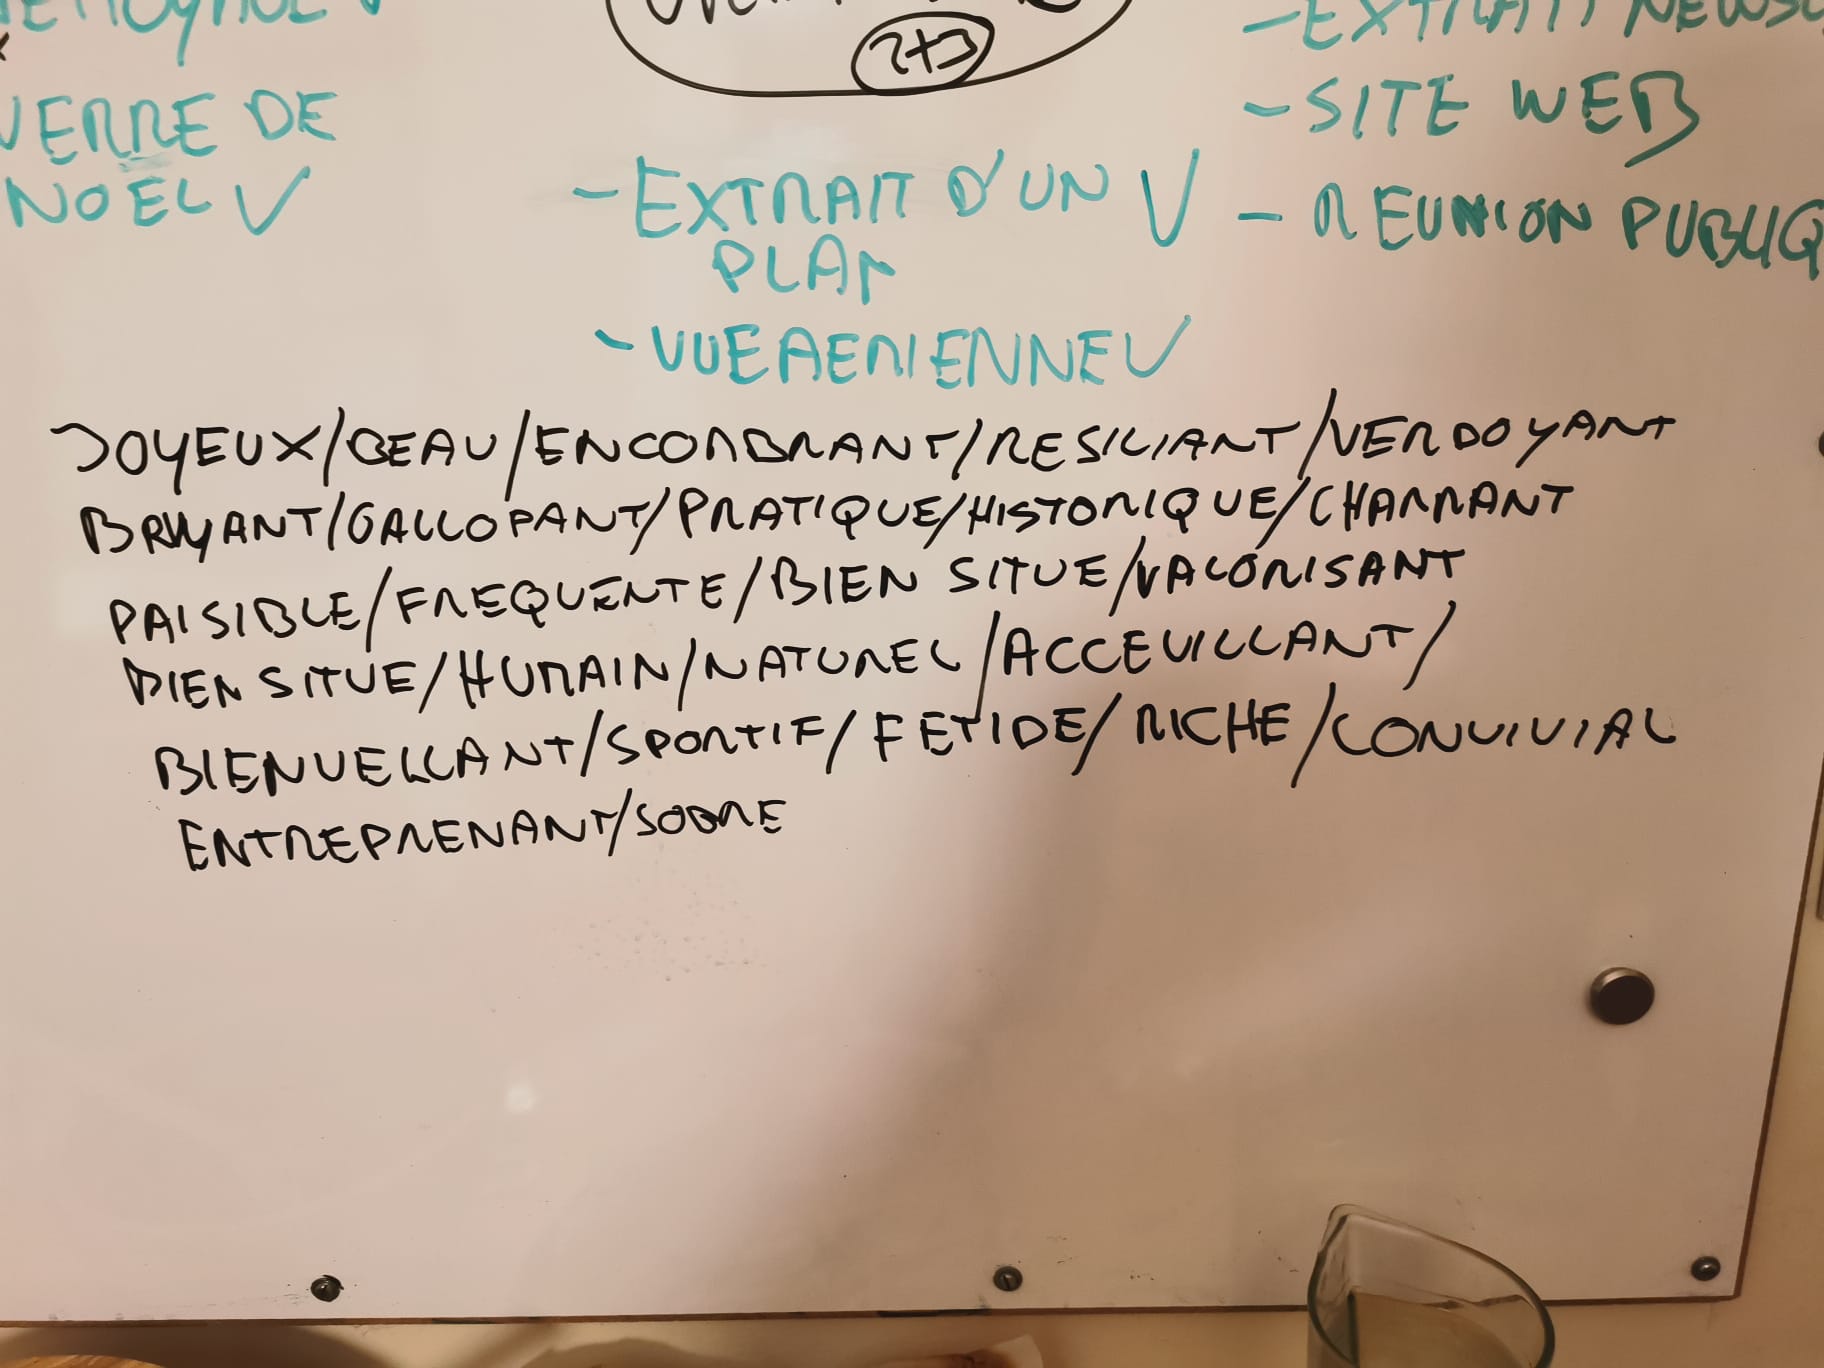 VERRE DE
NOEL V
2+3
- EXTRAIT D'UN V
PLAN
- VUE AERIENNE V
- EXTRAIT
- SITE WEB
- REUNION
JOYEUX/BEAU/ENCOMBRANT/RESILIANT/VERDOYANT
BRUYANT/GALLOPANT/PRATIQUE/HISTORIQUE/CHARMANT
PAISIBLE/FREQUENTE/BIEN SITUE/VALORISANT
BIEN SITUE/HUMAIN/NATUREL/ACCEUILLANT/
BIENVELLANT/SPORTIF/FETIDE/RICHE/CONVIVIAL
ENTREPRENANT/SOBRE